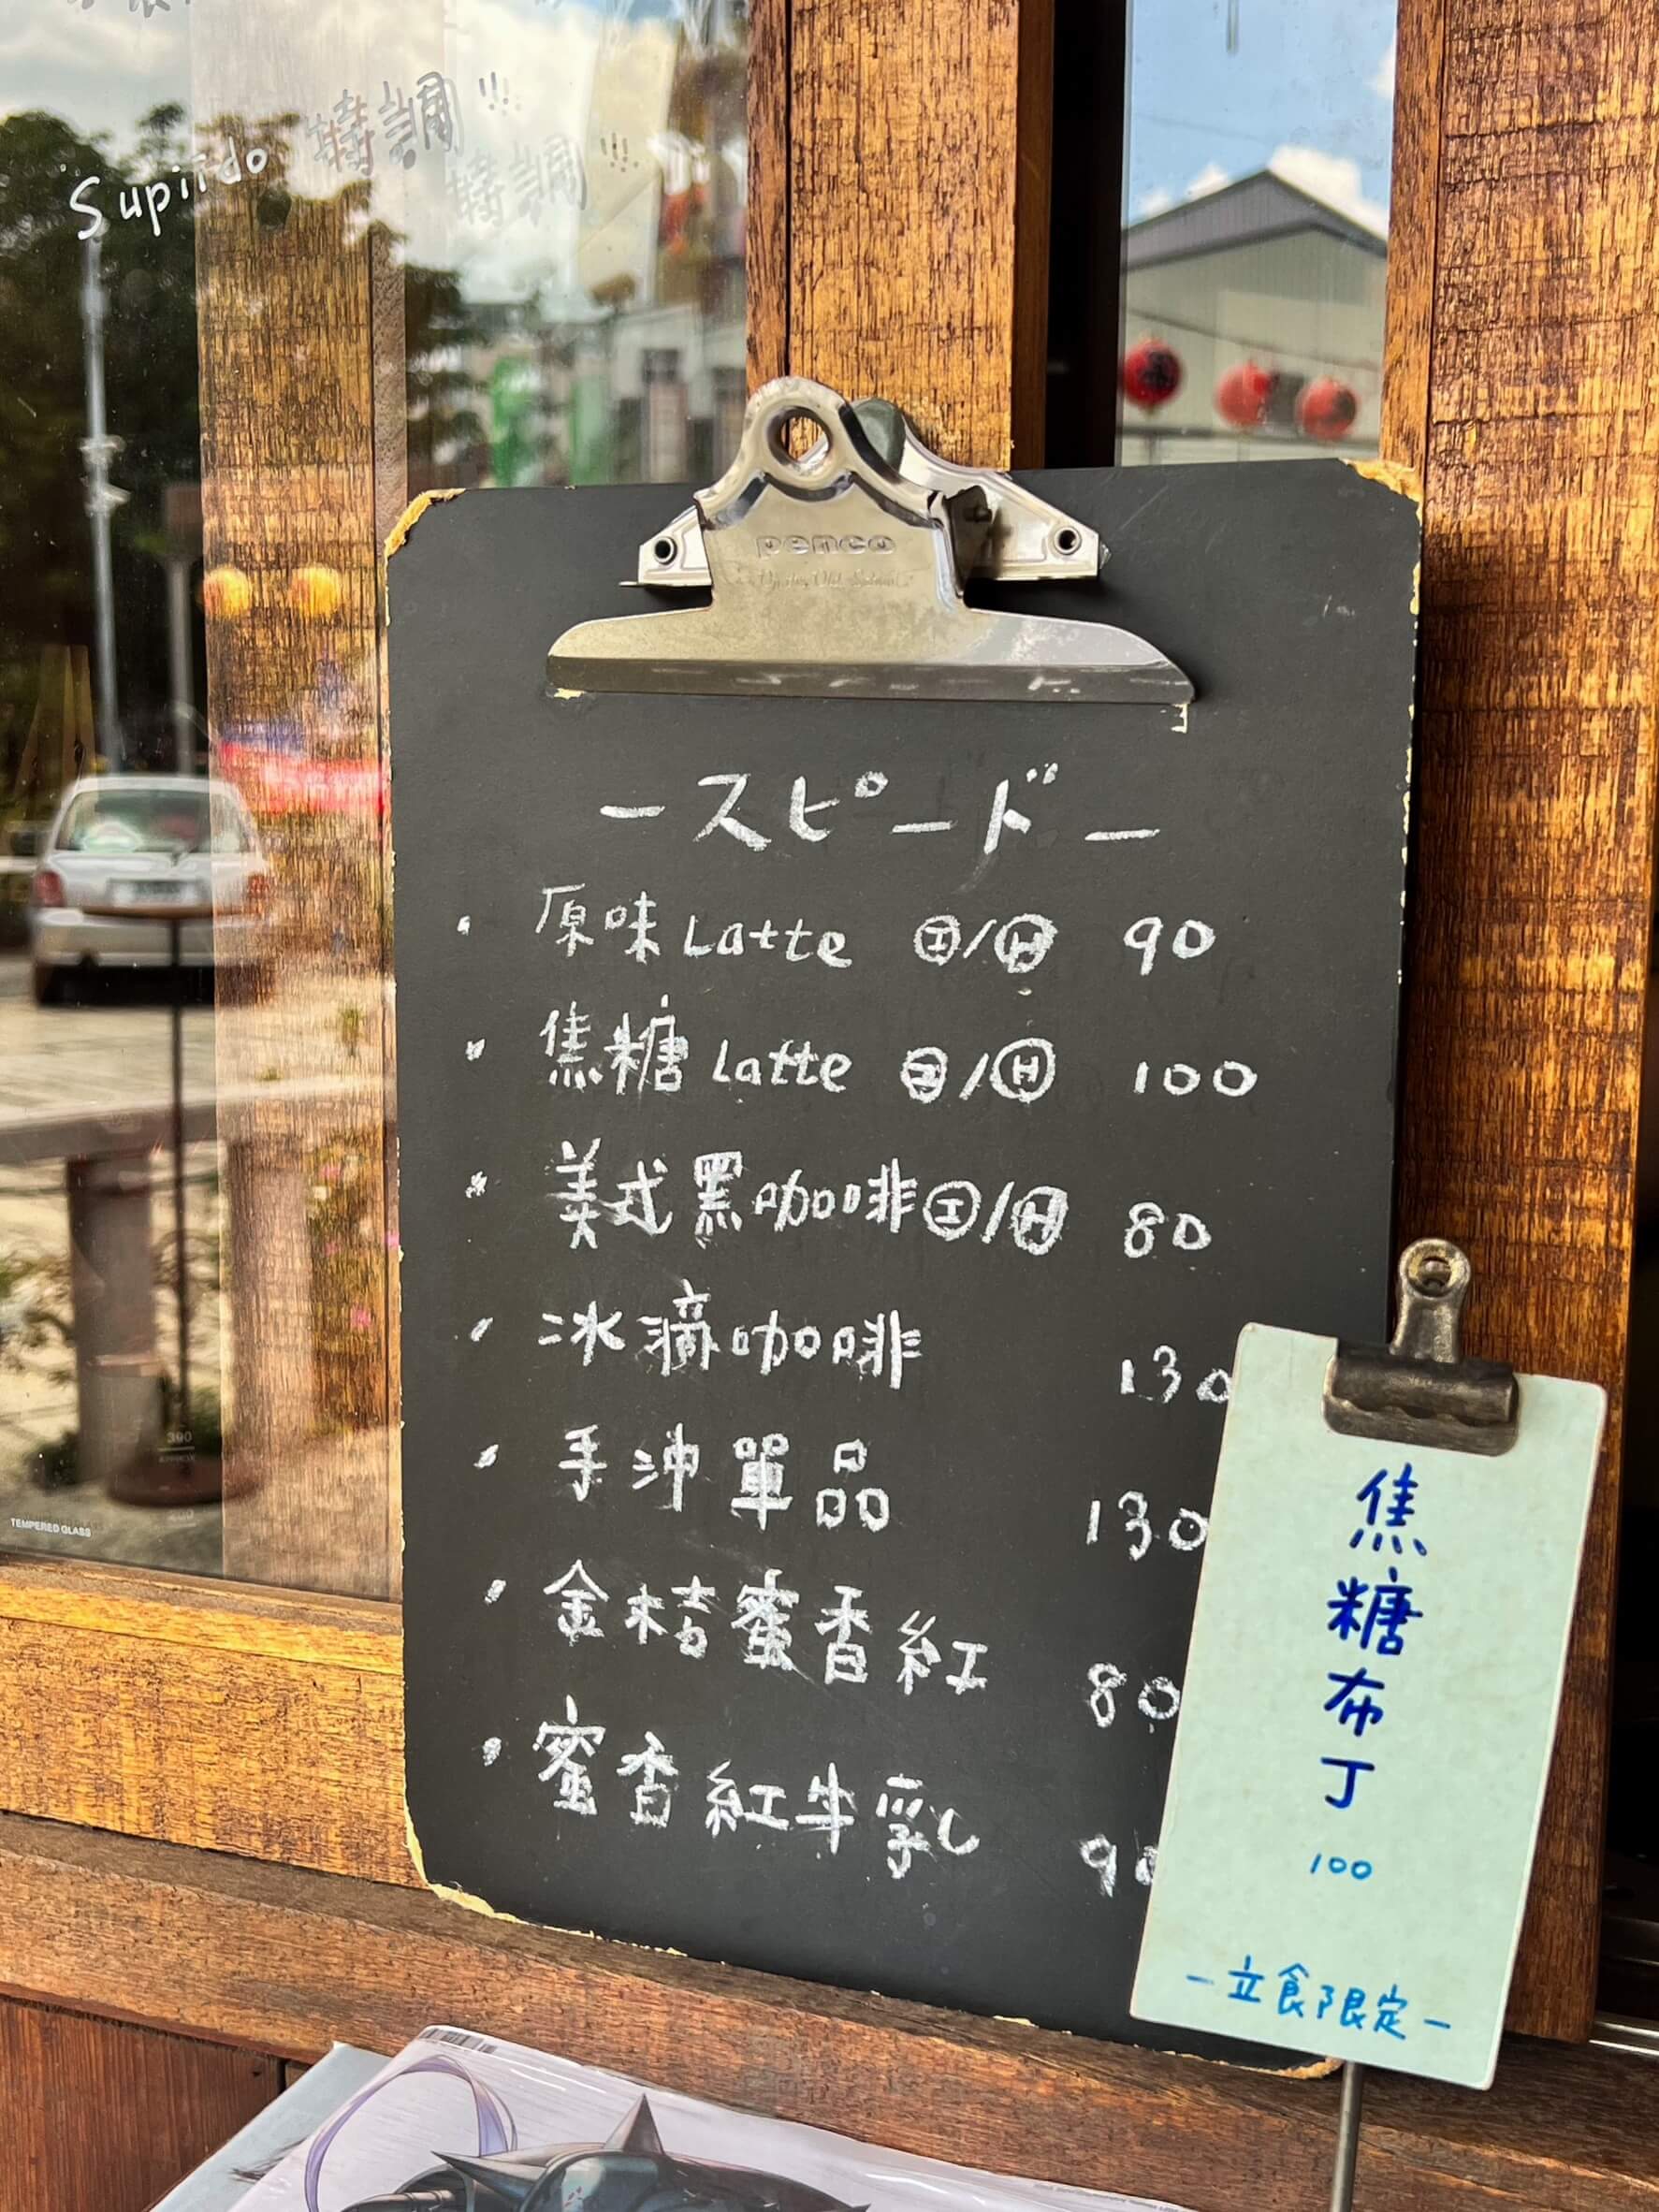 Supiido 特調!!
penco
ースピードー
・原味Latte Ⓘ/Ⓗ 90
・焦糖Latte Ⓘ/Ⓗ 100
・美式黑咖啡Ⓘ/Ⓗ 80
・冰滴咖啡 130
・手沖單品 130
・金桔蜜香紅 80
・蜜香紅牛乳 90
焦糖布丁
100
-立食限定-
TEMPERED GLASS
390